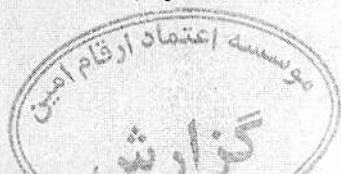 موسسه اعتماد ارقام امین
گزارش